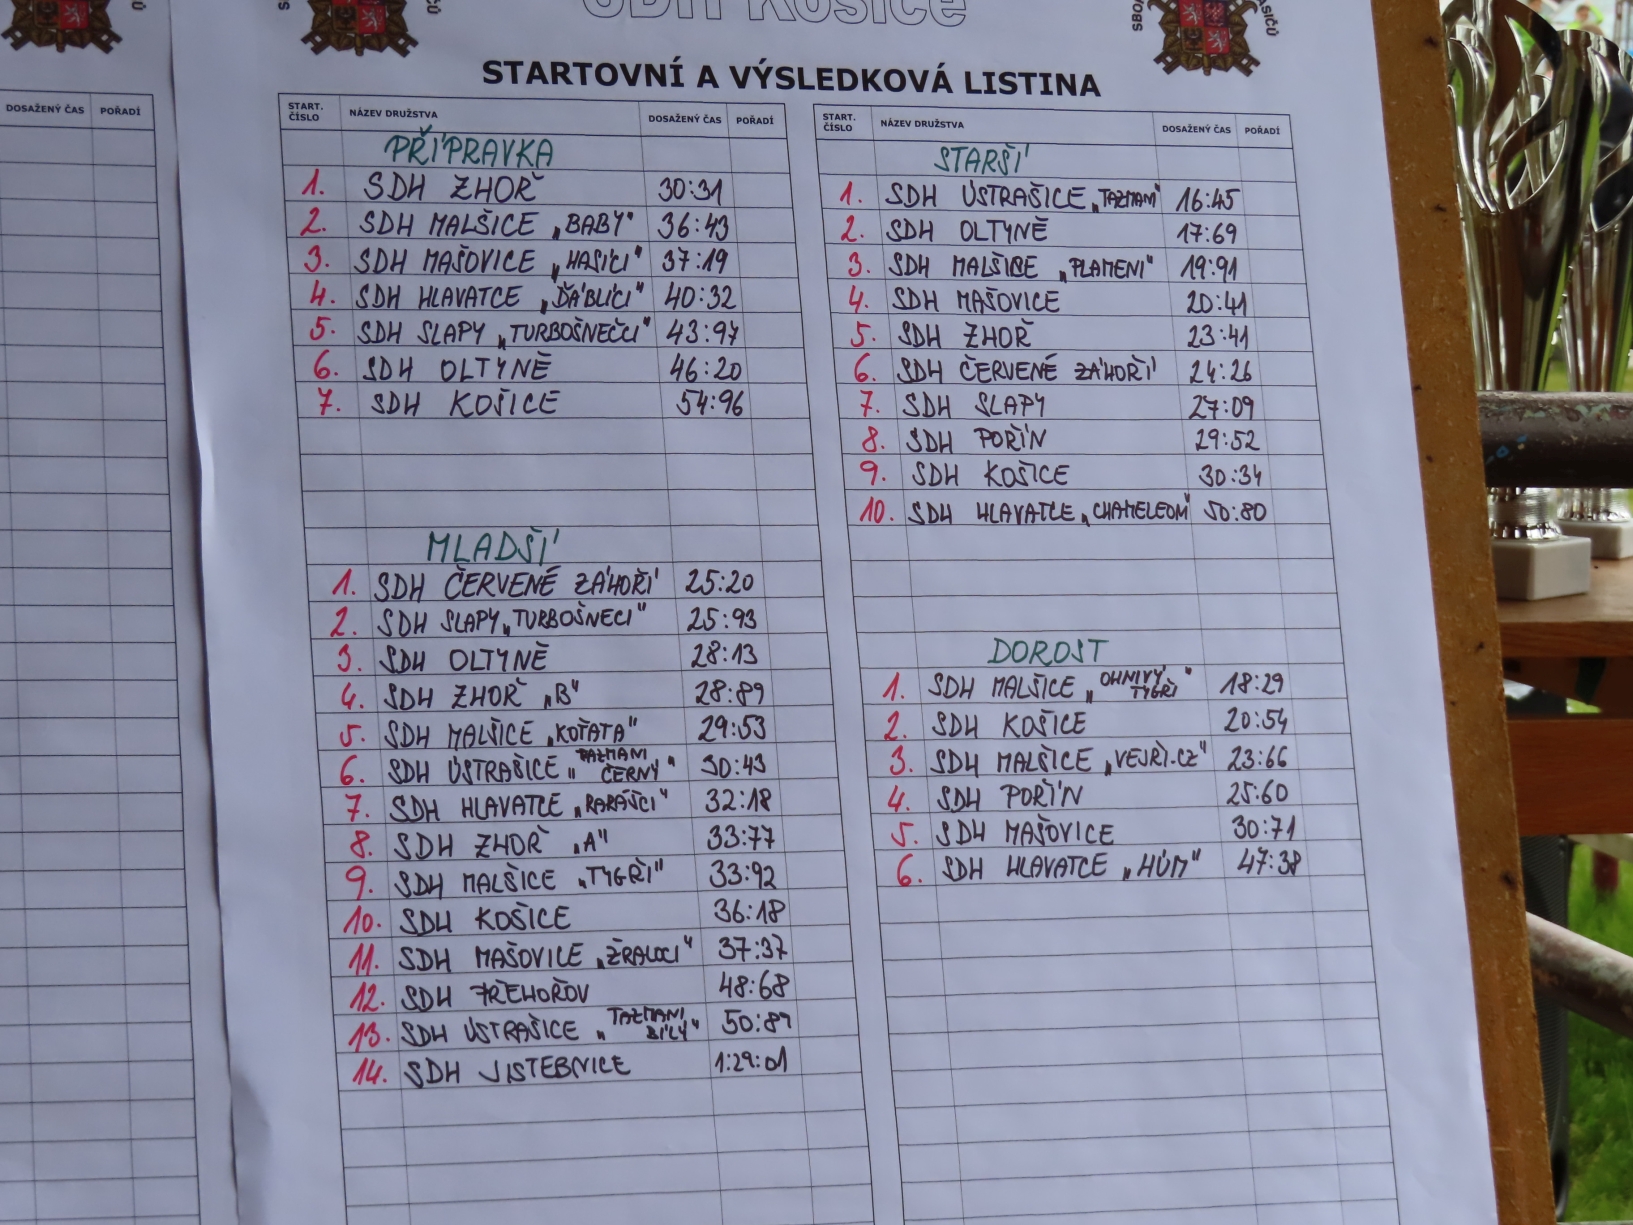 SDH Košice
STARTOVNÍ A VÝSLEDKOVÁ LISTINA
DOSAŽENÝ ČAS POŘADÍ
START. ČÍSLO NÁZEV DRUŽSTVA DOSAŽENÝ ČAS POŘADÍ
PŘÍPRAVKA
1. SDH ZHOŘ 30:31
2. SDH MALŠICE „BABY“ 36:43
3. SDH MAŠOVICE „HASIČI“ 37:19
4. SDH HLAVATCE „ĎÁBLÍCI“ 40:32
5. SDH SLAPY „TURBOŠNEČCI“ 43:97
6. SDH OLTYNĚ 46:20
7. SDH KOŠICE 54:96
MLADŠÍ
1. SDH ČERVENÉ ZÁHOŘÍ 25:20
2. SDH SLAPY „TURBOŠNECI“ 25:93
3. SDH OLTYNĚ 28:13
4. SDH ZHOŘ „B“ 28:89
5. SDH MALŠICE „KOŤATA“ 29:53
6. SDH ÚSTRAŠICE „TAZMANI ČERNÝ“ 30:43
7. SDH HLAVATCE „RARÁŠCI“ 32:18
8. SDH ZHOŘ „A“ 33:77
9. SDH MALŠICE „TYGŘI“ 33:92
10. SDH KOŠICE 36:18
11. SDH MAŠOVICE „ŽRALOCI“ 37:37
12. SDH PŘEHOŘOV 48:68
13. SDH ÚSTRAŠICE „TAZMANI BÍLÝ“ 50:89
14. SDH JISTEBNICE 1:29:01
START. ČÍSLO NÁZEV DRUŽSTVA DOSAŽENÝ ČAS POŘADÍ
STARŠÍ
1. SDH ÚSTRAŠICE „TAZMANI“ 16:45
2. SDH OLTYNĚ 17:69
3. SDH MALŠICE „PLAMENI“ 19:91
4. SDH MAŠOVICE 20:41
5. SDH ZHOŘ 23:41
6. SDH ČERVENÉ ZÁHOŘÍ 24:26
7. SDH SLAPY 27:09
8. SDH POŘÍN 29:52
9. SDH KOŠICE 30:34
10. SDH HLAVATCE „CHAMELEONI“ 50:80
DOROST
1. SDH MALŠICE „OHNIVÝ TYGŘI“ 18:29
2. SDH KOŠICE 20:54
3. SDH MALŠICE „VEJŘI.CZ“ 23:66
4. SDH POŘÍN 25:60
5. SDH MAŠOVICE 30:71
6. SDH HLAVATCE „HÚM“ 47:38